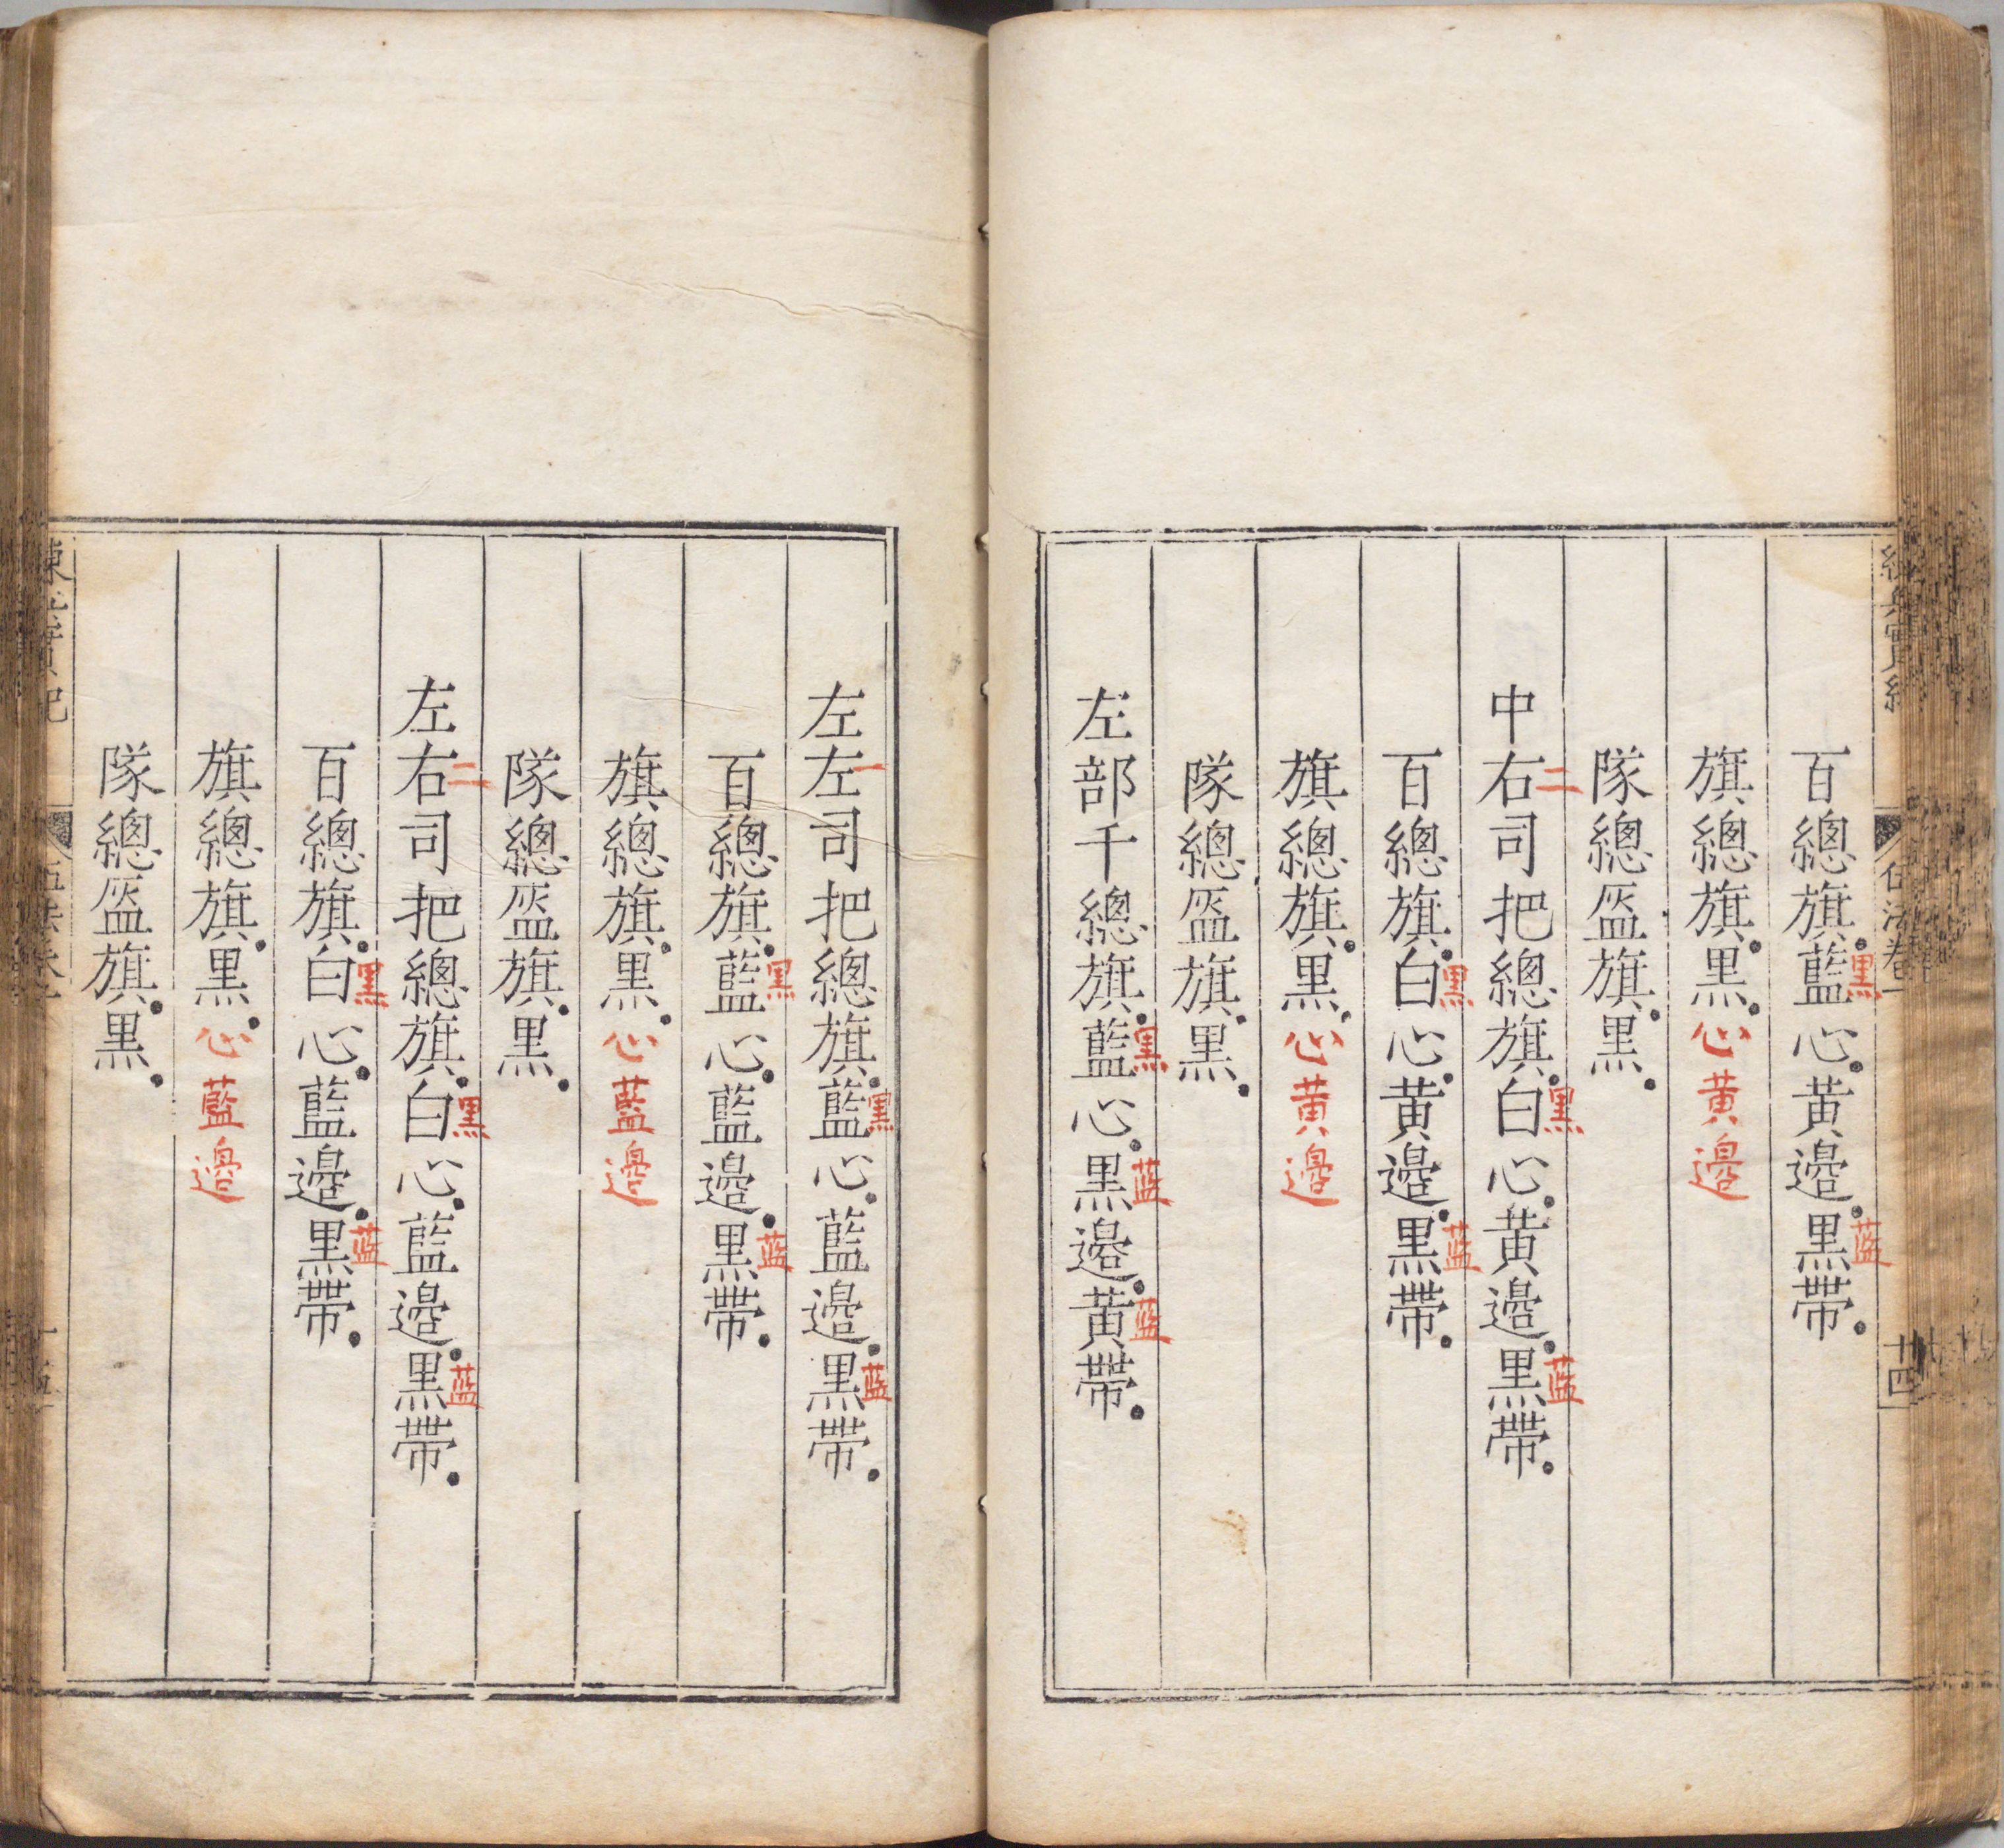 練兵實紀 伍法卷一 十四
百總旗。藍黑心。黄邊。黑蓝帶。
旗總旗。黑。心黄邊
隊總盔旗。黑。
中右二司把總旗。白黑心。黄邊。黑蓝帶。
百總旗。白黑心。黄邊。黑蓝帶。
旗總旗。黑。心黄邊
隊總盔旗。黑。
左部千總旗。藍黑心。黑蓝邊。黄蓝帶。
左左一司把總旗。藍黑心。藍邊。黑蓝帶。
百總旗。藍黑心。藍邊。黑蓝帶。
旗總旗。黑。心藍邊
隊總盔旗。黑。
左右二司把總旗。白黑心。藍邊。黑蓝帶。
百總旗。白黑心。藍邊。黑蓝帶。
旗總旗。黑。心藍邊
隊總盔旗。黑。